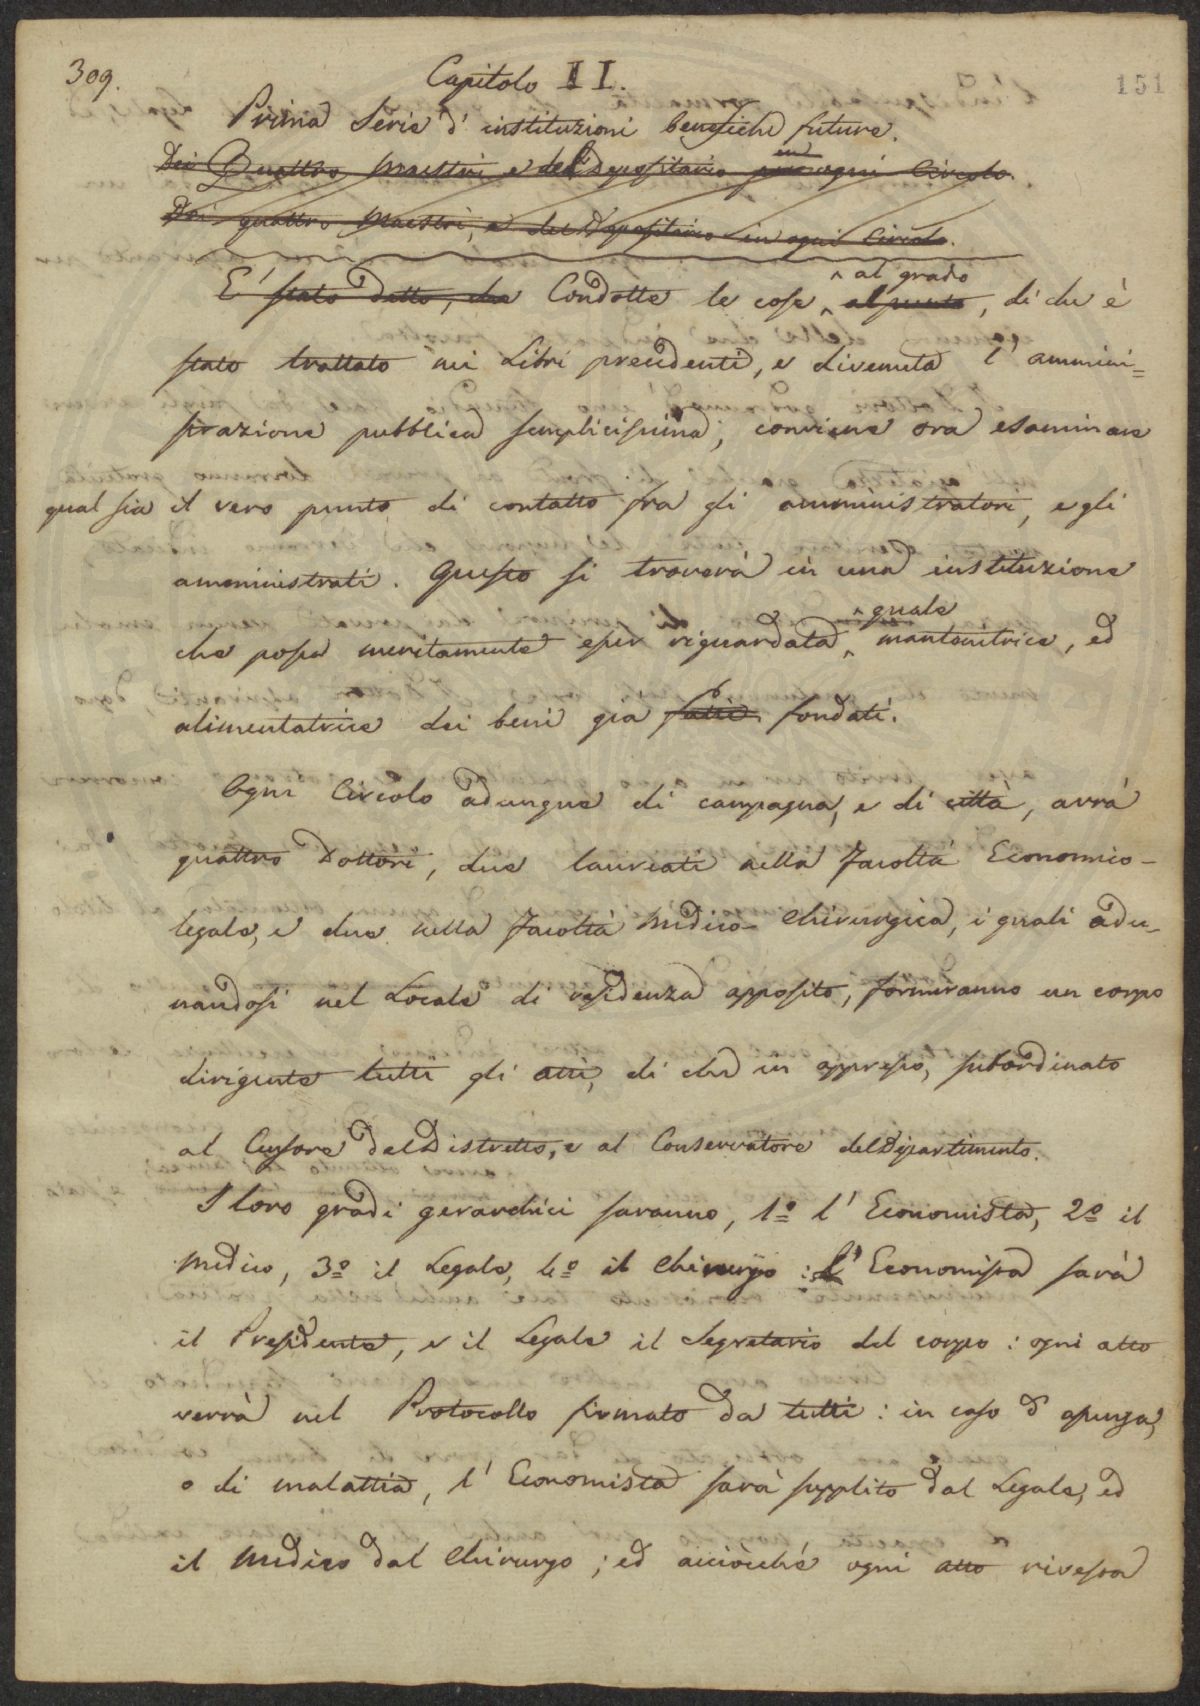 309.
151
Capitolo II.
Prima Serie d' instituzioni benefiche future.
Dei Quattro Maestri e del Depositario in ogni Circolo.
Dei quattro Maestri, e del Depositario in ogni Circolo.
E' stato detto, che Condotte le cose al grado al punto, di che è
stato trattato nei Libri precedenti, e divenuta l' ammini=
strazione pubblica semplicissima; conviene ora esaminare
qual sia il vero punto di contatto fra gli amministratori, e gli
amministrati. Questo si troverà in una instituzione
che possa meritamente esser riguardata quale mantenitrice, ed
alimentatrice dei beni gia fondati.
Ogni Circolo adunque di campagna, e di città, avrà
quattro Dottori, due laureati nella Facoltà Economico-
legale, e due nella Facoltà Medico-Chirurgica, i quali adu-
nandosi nel Locale di residenza apposito, formeranno un corpo
dirigente tutti gli atti, di che in appresso, subordinato
al Censore del Distretto, e al Conservatore del Dipartimento.
I loro gradi gerarchici saranno, 1º l' Economista, 2º il
Medico, 3º il Legale, 4º il Chirurgo: l' Economista sarà
il Presidente, e il Legale il Segretario del corpo: ogni atto
verrà nel Protocollo firmato da tutti: in caso d' assenza,
o di malattia, l' Economista sarà supplito dal Legale, ed
il Medico dal Chirurgo; ed acciocché ogni atto rivesta